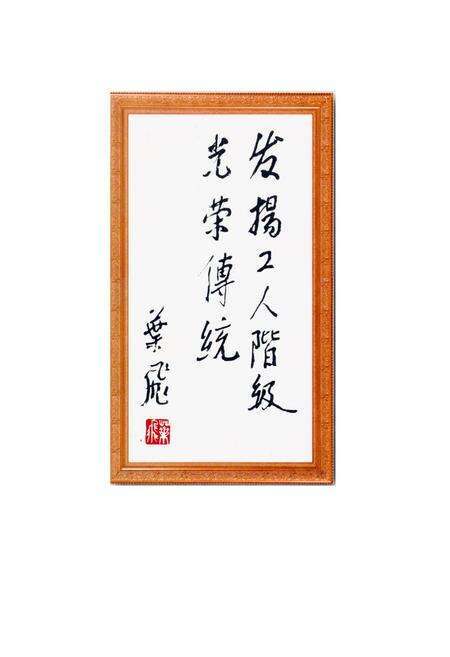 发揚工人階級
光荣傳統
葉飛
葉飛